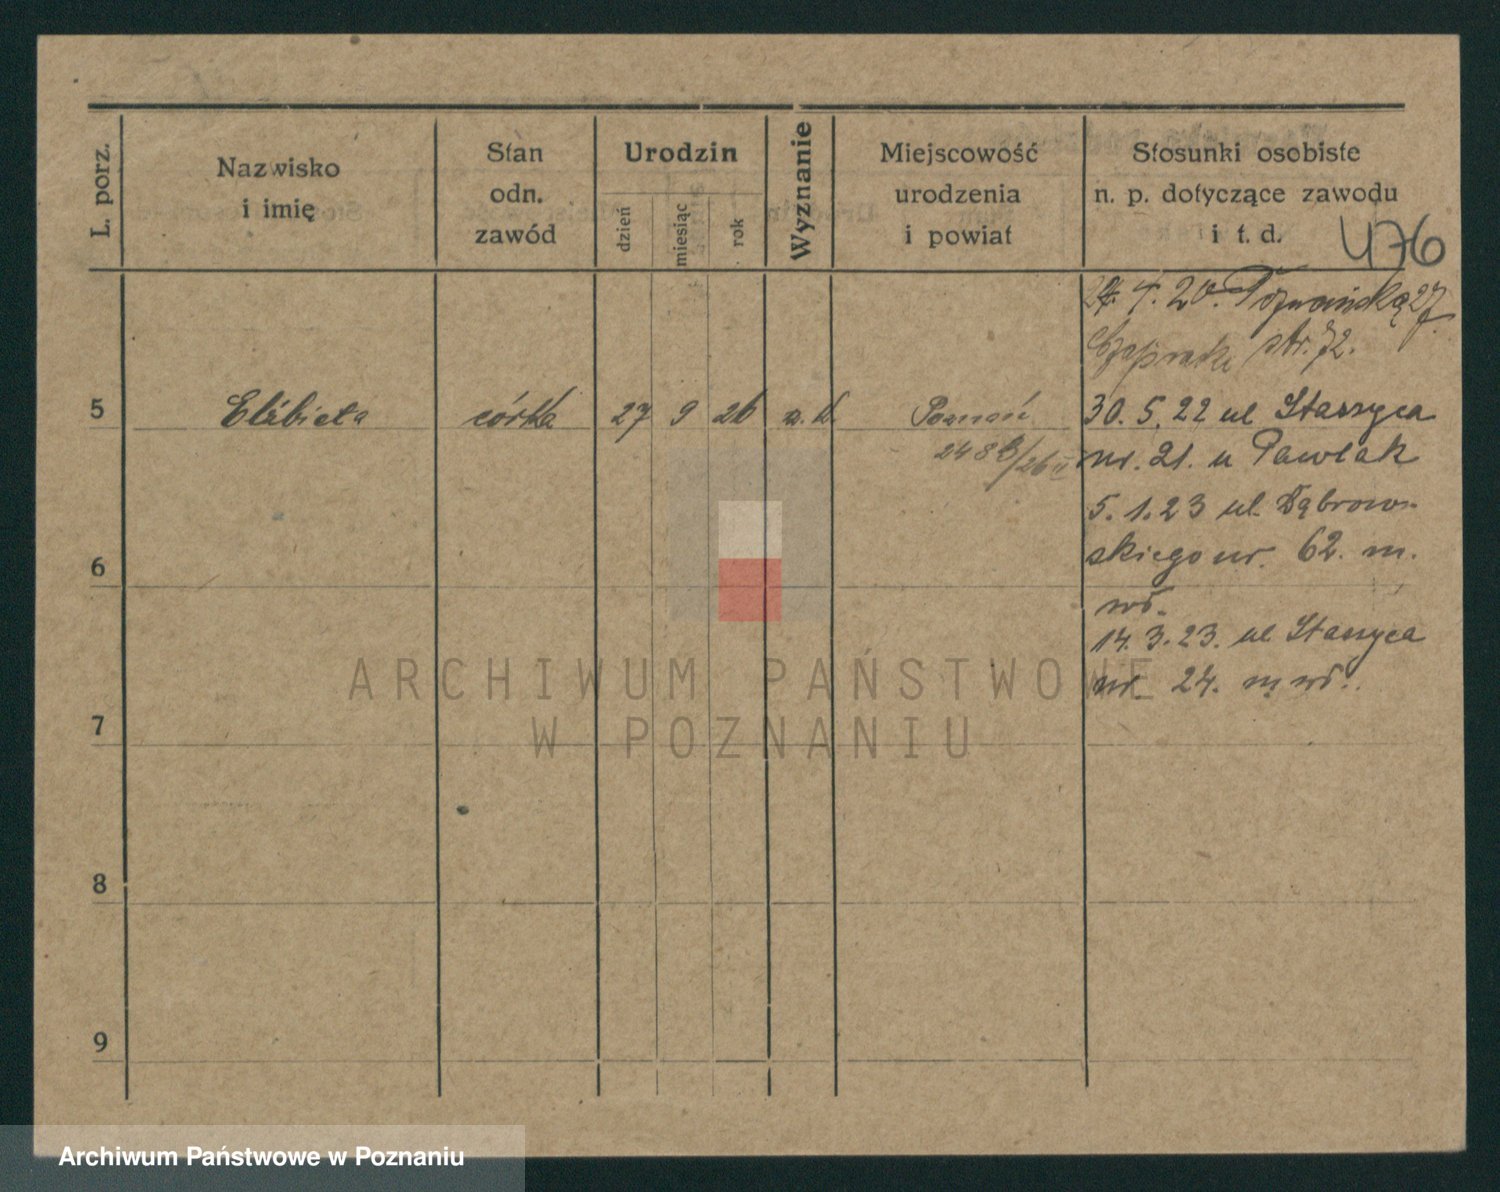 L. porz.
Nazwisko
i imię
Stan
odn.
zawód
Urodzin
dzień
miesiąc
rok
Wyznanie
Miejscowość
urodzenia
i powiat
Stosunki osobiste
n. p. dotyczące zawodu
i t. d.
476
4. 20. Poznańską 27
str. 72.
5 Elżbieta córka 27 9 26 Poznań
30. 5. 22 ul Staszyca
nr. 21. u Pawlak
5. 1. 23 ul. Dąbrow-
skiego nr. 62. m.
6
14. 3. 23. ul Staszyca
nr. 24. m
7
8
9
ARCHIWUM PAŃSTWOWE
W POZNANIU
Archiwum Państwowe w Poznaniu